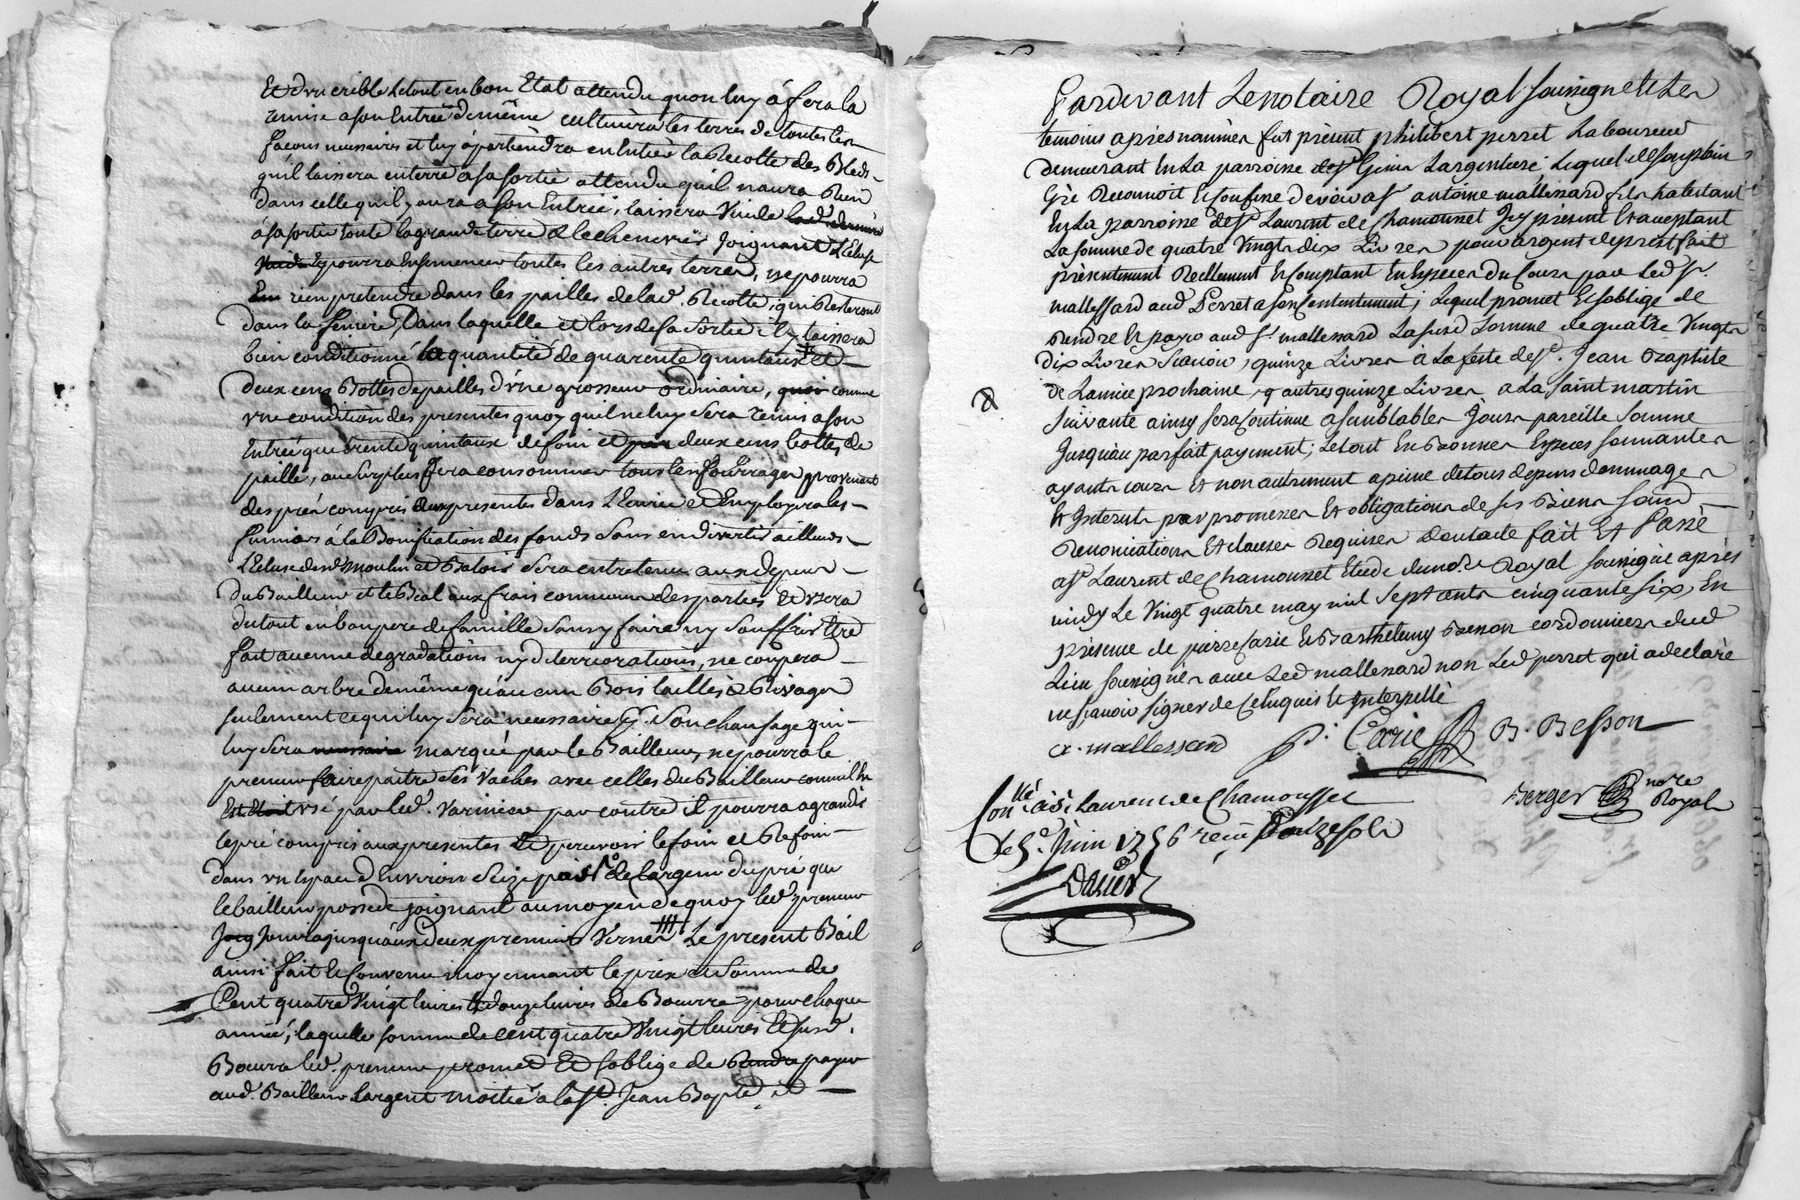 Et d'un crible le tout en bon Etat attendu quon luy á fera la
remise a son Entreé de même cultivera les terres de toutes les
façons necessaires et luy apartiendra en Entier la Recolte des Bleds
quil laissera en terre a sa sortie attendu quil naura Rien
dans celle quil y aura a son Entreé, laissera Vuide
á sa sortie toute la grande terre & le chenevier Joignant L'Ecluse
Et pourra Ensemencer toutes les autres terres, ne pourra
rien pretendre dans les pailles de lad. Recolte, qui Resteront
dans la feniere, dans laquelle et lors de sa Sortie il y laissera
bien conditionné la quantité de quarente quintaux et
deux cens Bottes de pailles d'vne grosseur ordinaire, comme
vne condition des presentes quoy quil ne luy sera remis a son
Entreé que trente quintaux de foin et deux cens bottes de
paille, au surplus fera consommer tous les fourrages provenant
des prés compris aux presentes dans L'Ecurie & Employera les
fumiers á la Bonification des fonds sans en divertir ailleurs
L'Ecluse desd. Moulin et Batoir sera entretenue aux depens
du Bailleur et le Bial aux frais communs des parties Et vzera
du tout en bon pere de famille sans y faire ny souffrir Etre
fait aucune degradations ny deterriorations, ne coupera
aucun arbre de même qu'aucun Bois tailles & Rivages
seulement ce qui luy sera necessaire pr. son chaufage qui
luy sera marqué par le Bailleur, ne pourra le
preneur faire paitre ses vaches avec celles du Bailleur comme il en
vsé par led. Variniew par contre il pourra agrandir
le pré compris aux presentes Et percevoir le foin et Refoin
dans vn Espace d'Environ seize pas de largeur du pré que
le bailleur possede joignant au moyen de quoy led. preneur
Jouira jusqu'aux deux premiers Vernes Le present Bail
ainsi fait Et Convenu moyennant le prix et Somme de
Cent quatre Vingt livres Et douze livres de Beurre pour chaque
année, laquelle somme de cent quatre Vingt livres Et susd.
Beurre led. preneur promet Et soblige de payer
aud. Bailleur Largent moitié a la St. Jean Bapte. et
Pardevant Le notaire Royal soussigné et Les
temoins après nommés fut présent philibert perret Laboureur
demeurant En La parroisse de St Genis Largentiere; Lequel de son plain
Gré Reconnoit Et Confesse devoir a Sr antoine mallessard fils habitant
En La parroisse de St Laurent de Chamousset Icy présent Et acceptant
La somme de quatre Vingt dix Livres pour argent de prest fait
présentement Reellement Et Comptant En Especes du Cours par Led Sr.
mallessard aud Perret a son Contentement; Lequel promet Et soblige de
Rendre Et payer aud Sr. mallessard La susd somme de quatre Vingt
dix Livres Scavoir, quinze Livres a La feste de St. Jean Baptiste
de Lannée prochaine, & autres quinze Livres a La Saint martin
Suivante ainsy sera Continué a semblables Jours pareille Somme
Jusqu'au parfait payement; Le tout En Bonnes Especes sonnantes
ayants cours Et non autrement a peine de tous depens dommages
Et Interets par promesses Et obligations de ses Biens soumd
Renonciations Et clauses Requises Dont acte fait Et Passé
a St Laurent de Chamousset Etude dud nore Royal soussigné après
midy Le Vingt quatre may mil sept cents cinquante six, En
présence de pierre Carie Et Barthelemy Besson cordonniers dud
Lieu soussignés avec Led mallessard non Led perret qui a declaré
ne scavoir signer de Ce Enquis Et Interpellé
a. mallessard P. Carie B. Besson
Berger nore Royal
Conllé a St Laurent de Chamousset
Le 5e. Juin 1756 receu Douze sols